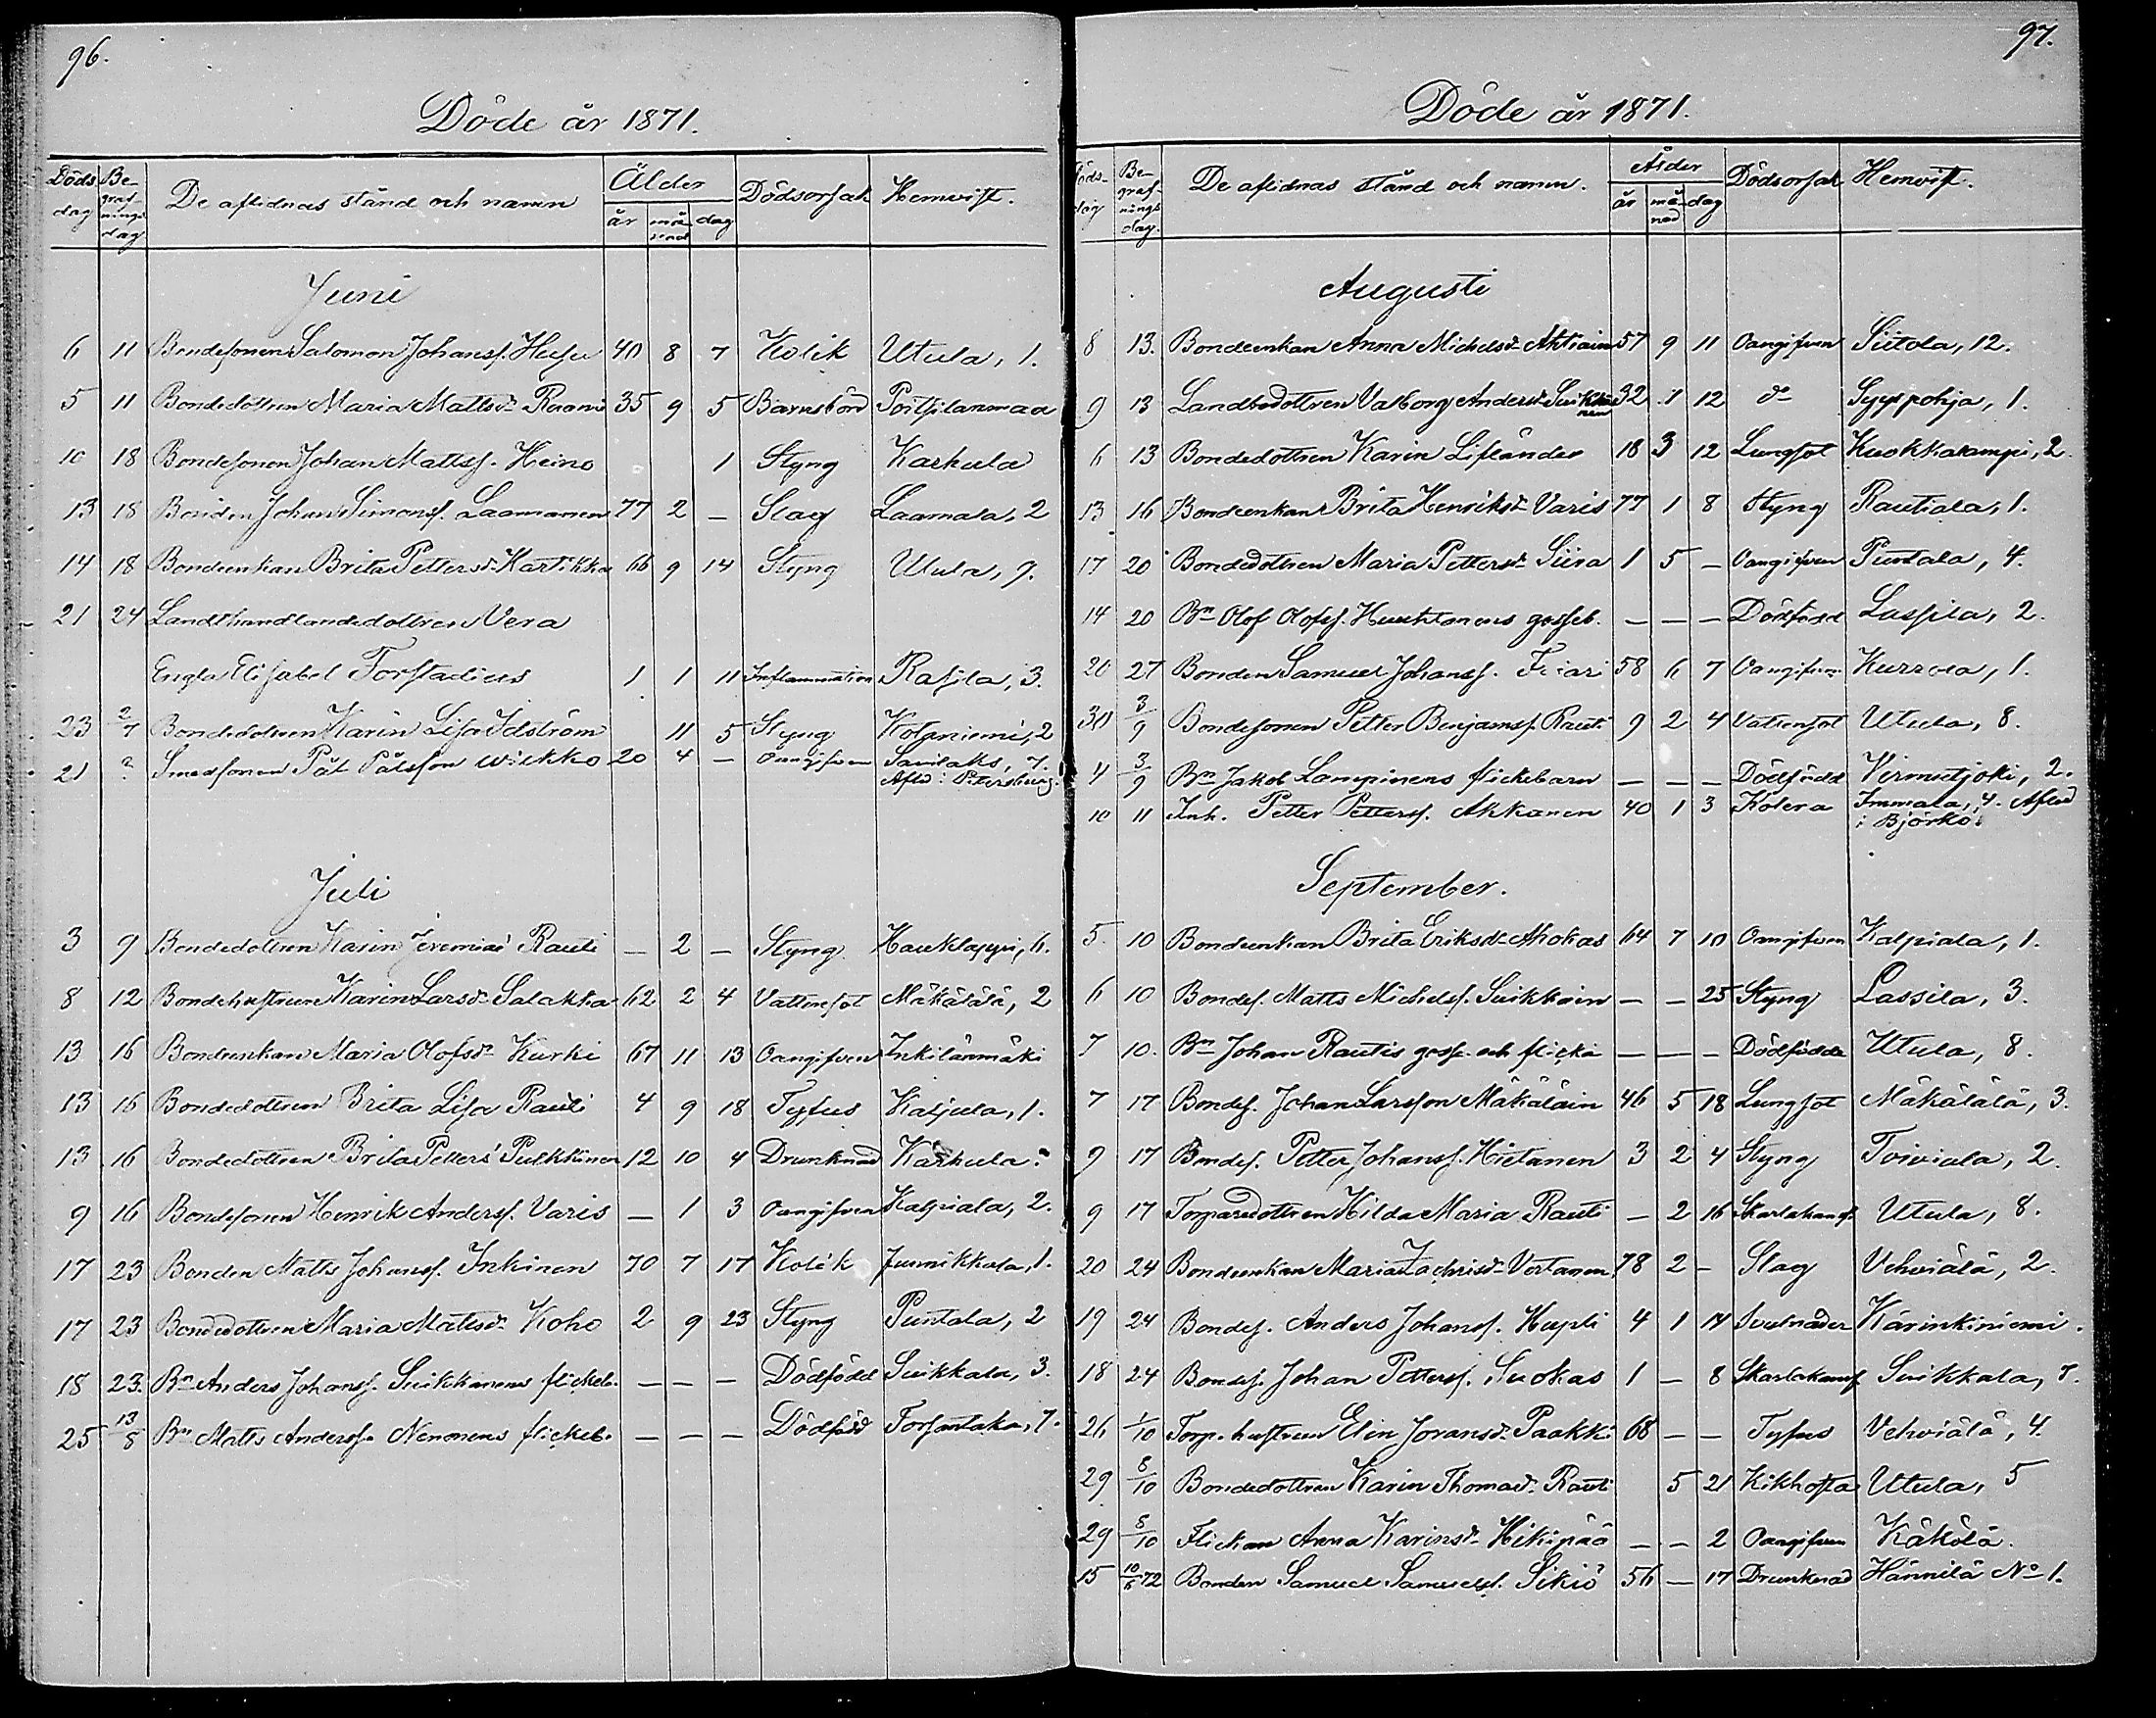 96.
Döde år 1871.
Döds dag Begrafningsdag De aflidnas stånd och namn Ålder år månad dag Dödsorsak Hemvist.
Juni
6 11 Bondesonen Salomon Johanss. Husu 40 8 7 Kolik Utula, 1.
5 11 Bondedottren Maria Mattsdr Raami 35 9 5 Barnsbörd Poitsilanmaa
10 18 Bondesonen Johan Mattss. Heino 1 Styng Karkula
13 18 Bonden Johan Simonss. Laamanen 77 2 — Slag Laamala, 2
14 18 Bondeenkan Brita Pettersdr Martikka 66 9 14 Styng Utula, 9.
21 24 Landthandlandedottren Vera
Engla Elisabet Forstadius 1 1 11 Inflammation Rasila, 3.
23 2/7 Bondedottren Karin Lisa Idström 11 5 Styng Kotaniemi, 2
21 ? Smedsonen Pål Pålsson Wirkko 20 4 — Oangifven Savilaks, 7.
Afled i Petersburg.
Juli
3 9 Bondedottren Karin Jeremiasd Rauti — 2 — Styng Haukkappi, 6.
8 12 Bondehustrun Karin Larsdr Salakka 62 2 4 Vattensot Mäkälälä, 2
13 16 Bondeenkan Maria Olofsdr Kurki 67 11 13 Oangifven Inkilänmäki
13 16 Bondedottren Brita Lisa Rauti 4 9 18 Tyfus Kaljula, 1.
13 16 Bondedottren Brita Petters Pulkkinen 12 10 4 Drunknad Karkula
9 16 Bondesonen Henrik Anderss. Varis — 1 3 Oangifven Kalpiala, 2.
17 23 Bonden Matts Johanss. Inkinen 70 7 17 Kolik Junnikkala, 1.
17 23 Bondedottren Maria Mattsdr Koho 2 9 23 Styng Puntala, 2
18 23. Bn Anders Johanss. Suikkanens flickeb. — — — Dödfödd Suikkala, 3.
25 13/8 Bn Matts Anderss. Nenonens flickeb. — — — Dödfödd Torsantaka, 7.
97.
Döde år 1871.
Dödsdag Begrafningsdag. De aflidnas stånd och namn. Ålder år månad dag Dödsorsak Hemvist.
Augusti
8 13. Bondeenkan Anna Michelsdr Ahtiain 57 9 11 Oangifven Siitola, 12.
9 13 Landbodottren Valborg Andersdr Suikkanen 32 1 12 do Syyspohja, 1.
6 13 Bondedottren Karin Lifländer 18 3 12 Lungsot Kuokkalampi, 2.
13 16 Bondeenkan Brita Henriksdr Varis 77 1 8 Styng Rautiala, 1.
17 20 Bondedottren Maria Pettersdr Siira 1 5 — Oangifven Puntala, 4.
14 20 Bn Olof Olofss. Huuhtanens gosseb. — — — Dödfödd Lassila, 2.
20 27 Bonden Samuel Johanss. Friari 58 6 7 Oangifven Kurrola, 1.
30 3/9 Bondesonen Petter Benjamss. Rauti 9 2 4 Vattensot Utula, 8.
4 3/9 Bn Jakob Lampinens flickebarn — — — Dödfödd Virmutjoki, 2.
10 11 Inh. Petter Petterss. Akkanen 40 1 3 Kolera Immala, 4. Afled
i Björkö.
September.
5. 10 Bondeenkan Brita Eriksdr Ahokas 64 7 10 Oangifven Kalpiala, 1.
6 10 Bondes. Matts Michelss. Suikkain — — 25 Styng Lassila, 3.
7 10. Bn Johan Rautis gosse och flicka — — — Dödfödda Utula, 8.
7 17 Bondes. Johan Larsson Mäkäläin 46 5 18 Lungsot Mäkälälä, 3.
9 17 Bondes. Petter Johanss. Hietanen 3 2 4 Styng Toiviala, 2.
9 17 Torparedottren Hilda Maria Rauti — 2 16 Skarlakansf Utula, 8.
20 24 Bondeenkan Maria Zachrisdr Vertanen 78 2 — Slag Vehviälä, 2.
19 24 Bondes. Anders Johanss. Hupli 4 1 14 Svulnader Kärinkiniemi.
18 24 Bondes. Johan Petterss. Suokas 1 — 8 Skarlakansf Suikkala, 7.
26 1/10 Torp. hustrun Elin Joransdr Paakki 68 — — Tyfus Vehviälä, 4.
29 8/10 Bondedottren Karin Thomasdr Rauti 5 21 Kikhosta Utula, 5
29 8/10 Flickan Anna Karinsdr Hikipää — — 2 Oangifven Käkölä.
15 10/6 72 Bonden Samuel Samuelss. Sikiö 56 — 17 Drunknad Hännilä No 1.